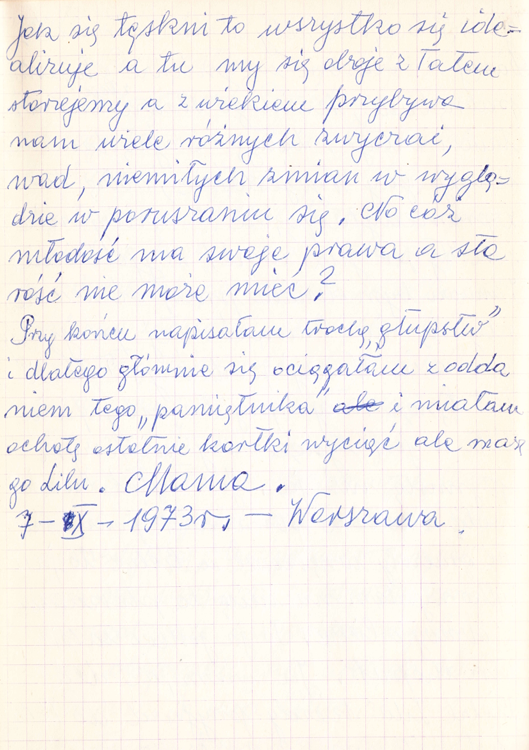 Jak się tęskni to wszystko się ide=
alizuje a tu my się oboje z Tatem
starzejemy a z wiekiem przybywa
nam wiele różnych zwyczai,
wad, niemiłych zmian w wyglą=
dzie w poruszaniu się. No cóż
młodość ma swoje prawa a sta
rość nie może mieć?
Przy końcu napisałam trochę „głupstw”
i dlatego głównie się ociągałam z odda
niem tego „pamiętnika” ale i miałam
ochotę ostatnie kartki wyciąć ale masz
go Lilu. Mama.
7 – IX – 1973 r. – Warszawa.